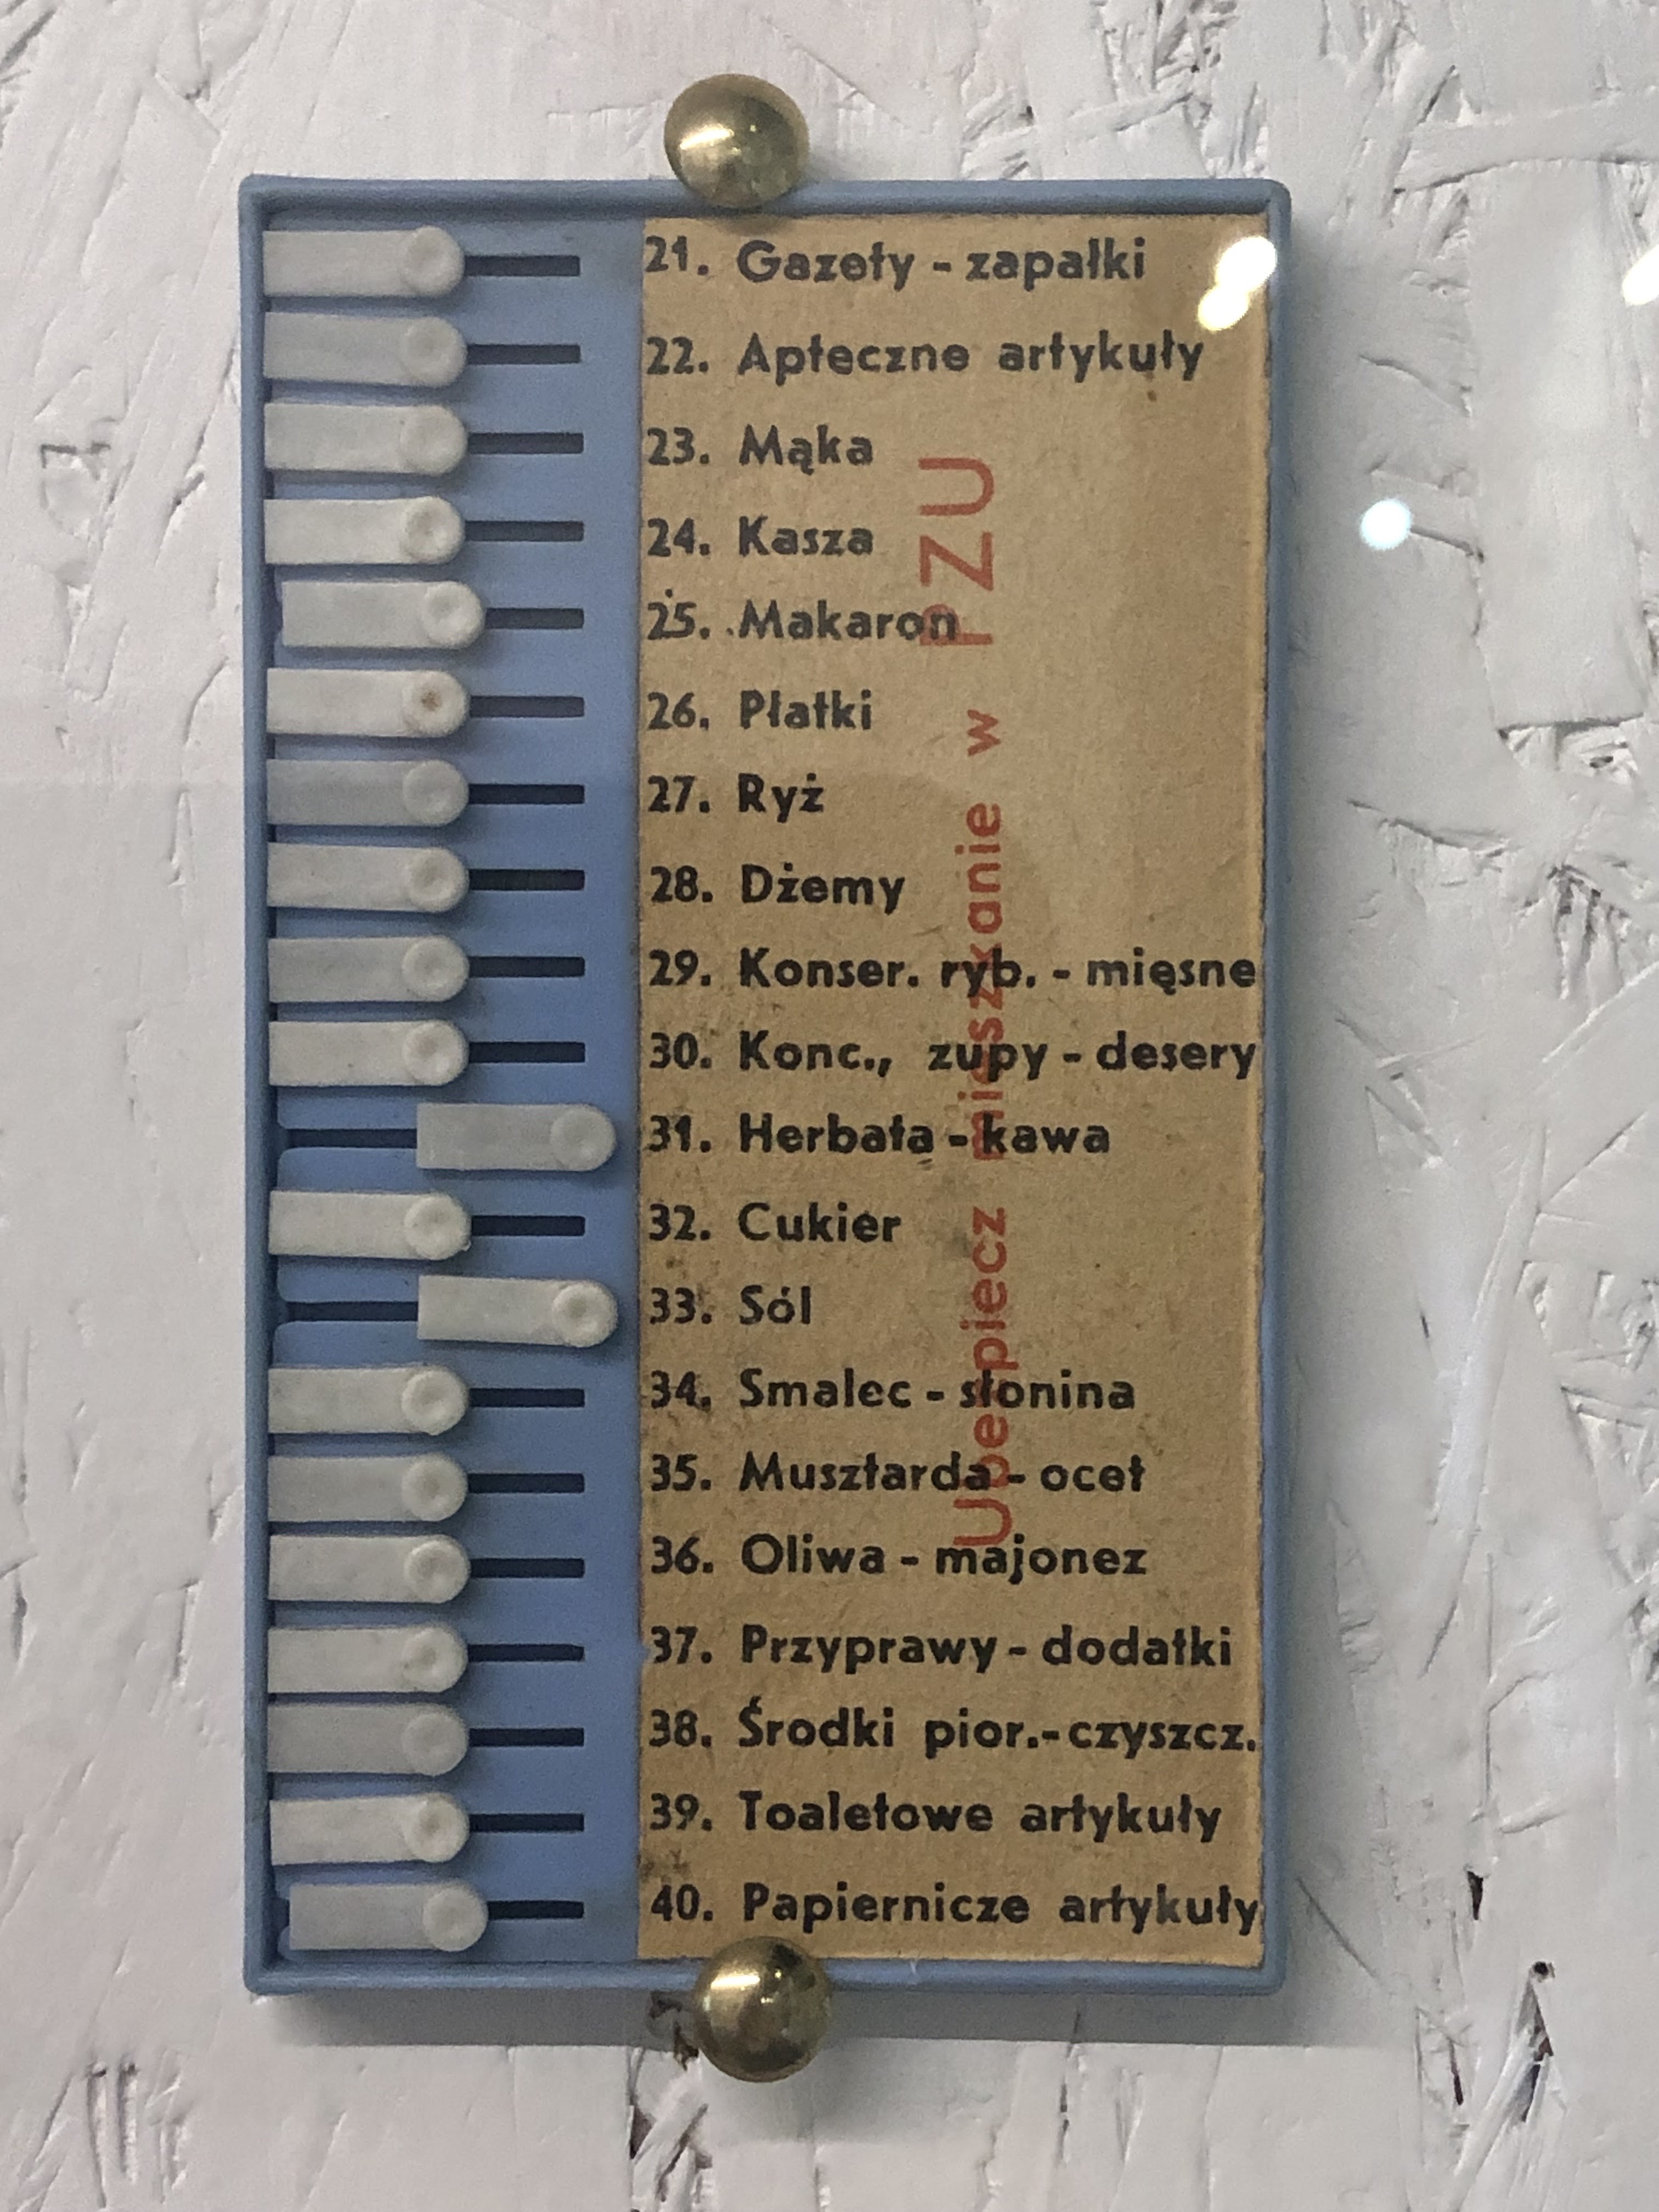 21. Gazety - zapałki
22. Apteczne artykuły
23. Mąka
24. Kasza
25. Makaron
26. Płatki
27. Ryż
28. Dżemy
29. Konser. ryb. - mięsne
30. Konc., zupy - desery
31. Herbata - kawa
32. Cukier
33. Sól
34. Smalec - słonina
35. Musztarda - ocet
36. Oliwa - majonez
37. Przyprawy - dodatki
38. Środki pior.-czyszcz.
39. Toaletowe artykuły
40. Papiernicze artykuły
Ubezpiecz mieszkanie w PZU